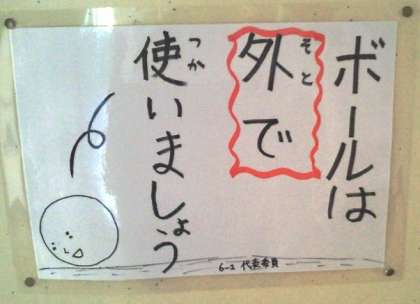 ボールは
外で
そと
使いましょう
つか
6-2 代表委員